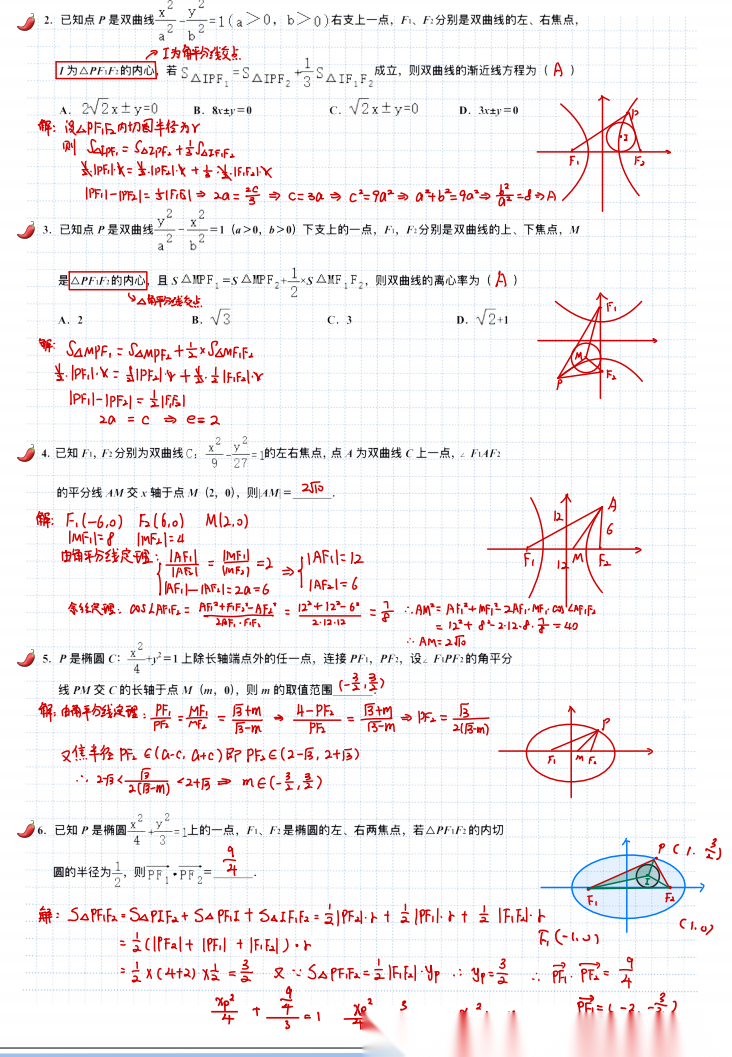 2. 已知点 P 是双曲线 x²/a² - y²/b² =1(a＞0，b＞0)右支上一点，F₁、F₂分别是双曲线的左、右焦点，
I为角平分线交点
I 为△PF₁F₂的内心，若 S△IPF₁ =S△IPF₂ +1/3 S△IF₁F₂ 成立，则双曲线的渐近线方程为（ A ）
A. 2√2x±y=0 B. 8x±y＝0 C. √2x±y=0 D. 3x±y＝0
解：设△PF₁F₂内切圆半径为r
则 S△IPF₁ = S△IPF₂ + 1/3 S△IF₁F₂
½·|PF₁|·r = ½·|PF₂|·r + ⅓·½·|F₁F₂|·r
|PF₁|-|PF₂| = ⅓|F₁F₂| ⇒ 2a = 2c/3 ⇒ c=3a ⇒ c²=9a² ⇒ a²+b²=9a² ⇒ b²/a²=8 ⇒A
P
I
F₁ F₂
3. 已知点 P 是双曲线 y²/a² - x²/b² =1（a＞0，b＞0）下支上的一点，F₁，F₂分别是双曲线的上、下焦点，M
是△PF₁F₂的内心，且 S△MPF₁ =S△MPF₂+1/2×S△MF₁F₂，则双曲线的离心率为（ A ）
△角平分线交点
A. 2 B. √3 C. 3 D. √2+1
解： S△MPF₁ = S△MPF₂ + ½×S△MF₁F₂
½·|PF₁|·r = ½|PF₂|·r + ½·½|F₁F₂|·r
|PF₁|-|PF₂| = ½|F₁F₂|
2a = c ⇒ e=2
F₁
M
P F₂
4. 已知 F₁，F₂分别为双曲线C: x²/9 - y²/27 =1的左右焦点，点 A 为双曲线 C 上一点，∠F₁AF₂
的平分线 AM 交 x 轴于点 M（2，0），则|AM|＝ 2√10 .
解： F₁(-6,0) F₂(6,0) M(2,0)
|MF₁|=8 |MF₂|=4
由角平分线定理： |AF₁|/|AF₂| = |MF₁|/|MF₂| =2 ⇒ |AF₁|=12
|AF₁|-|AF₂|=2a=6 |AF₂|=6
余弦定理: cos∠AF₁F₂ = AF₁²+F₁F₂²-AF₂²/2AF₁·F₁F₂ = 12²+12²-6²/2·12·12 = 7/8 ∴AM²= AF₁²+MF₁²-2AF₁·MF₁·cos∠AF₁F₂
= 12²+8²-2·12·8·7/8 =40
∴AM=2√10
A
12
6
F₁ 12 M F₂
5. P 是椭圆 C: x²/4 +y²＝1 上除长轴端点外的任一点，连接 PF₁，PF₂，设∠F₁PF₂的角平分
线 PM 交 C 的长轴于点 M（m，0），则 m 的取值范围 (-3/2, 3/2)
解: 由角平分线定理: PF₁/PF₂ = MF₁/MF₂ = √3+m/√3-m ⇒ 4-PF₂/PF₂ = √3+m/√3-m ⇒ PF₂= √3/2(√3-m)
又焦半径 PF₂∈(a-c, a+c)即PF₂∈(2-√3, 2+√3)
∴ 2-√3< √3/2(√3-m) <2+√3 ⇒ m∈(-3/2, 3/2)
P
F₁ M F₂
6. 已知 P 是椭圆 x²/4 + y²/3 =1上的一点，F₁、F₂是椭圆的左、右两焦点，若△PF₁F₂的内切
圆的半径为1/2，则 PF₁•PF₂= 9/4 .
P(1, 3/2)
I
F₁ F₂
F₁(-1,0) (1,0)
解: S△PF₁F₂ = S△PIF₂ + S△PF₁I + S△IF₁F₂ = ½|PF₂|·r + ½|PF₁|·r + ½|F₁F₂|·r
= ½(|PF₂| + |PF₁| + |F₁F₂|)·r
= ½×(4+2)×½ = 3/2 又∵S△PF₁F₂=½|F₁F₂|·yp ∴yp=3/2 ∴PF₁·PF₂= 9/4
xp²/4 + 9/4/3 =1